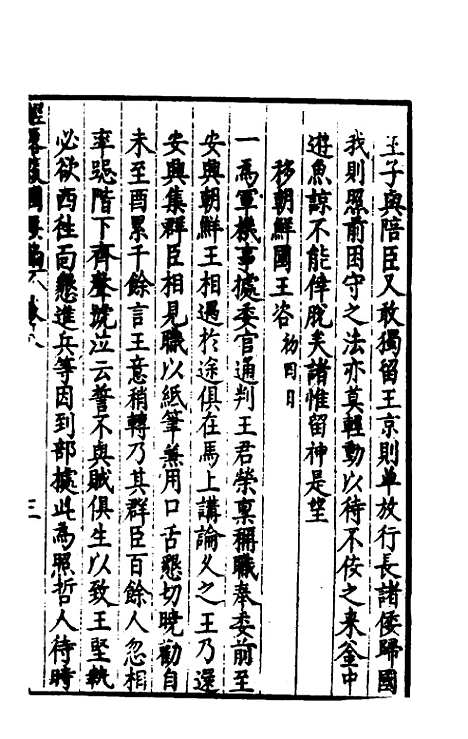 王子與陪臣又敢獨留王京則單放行長諸倭歸國
我則照前困守之法亦莫輕動以待不佞之來釜中
遊魚諒不能倖脫矣諸惟留神是望
移朝鮮國王咨 初四日
一為軍機事據委官通判王君榮稟稱職奉委前至
安興朝鮮王相遇於途俱在馬上講論久之王乃還
安興集群臣相見職以紙筆兼用口舌懇切曉勸自
未至酉累千餘言王意稍轉乃其群臣百餘人忽相
率跪階下齊聲號泣云誓不與賊俱生以致王堅執
必欲西往面懇進兵等因到部據此為照哲人待時
經畧復國要編 卷八
三